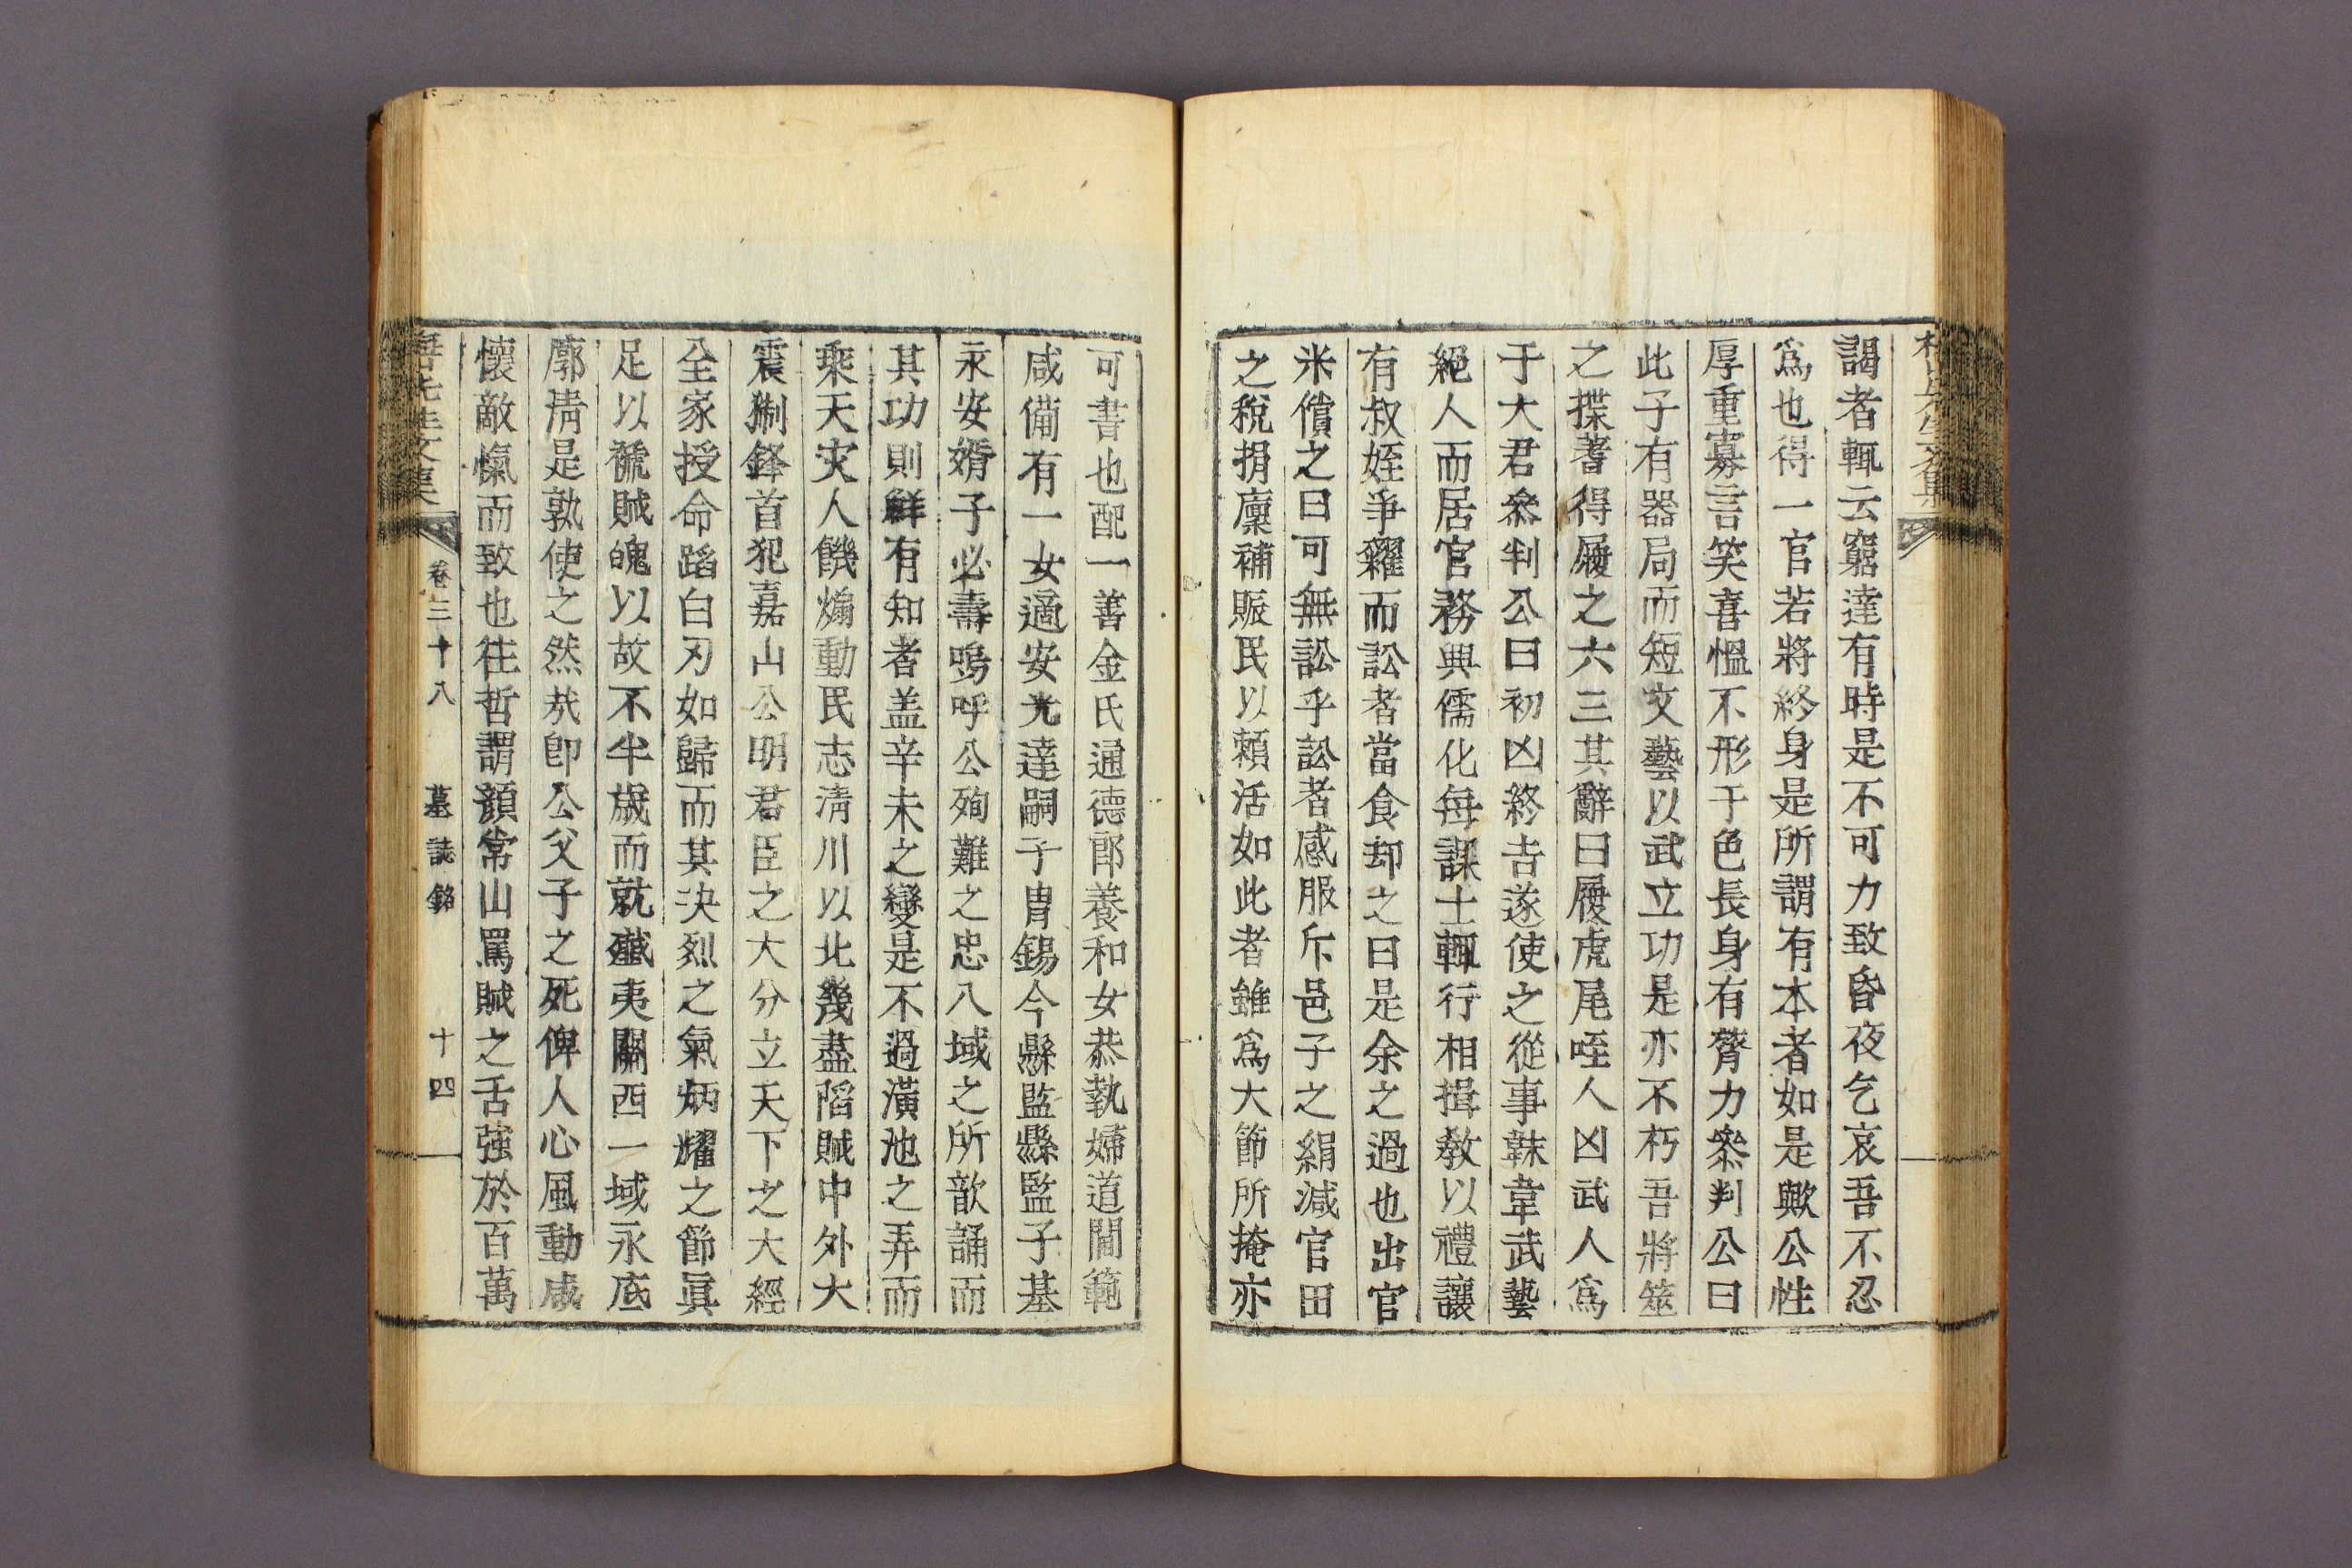 謁者輒云窮達有時是不可力致昏夜乞哀吾不忍
爲也得一官若將終身是所謂有本者如是歟公性
厚重寡言笑喜慍不形于色長身有膂力叅判公曰
此子有器局而短文藝以武立功是亦不朽吾將筮
之揲蓍得履之六三其辭曰履虎尾咥人凶武人爲
于大君叅判公曰初凶終吉遂使之從事韎韋武藝
絕人而居官務興儒化每課士輒行相揖敎以禮讓
有叔姪爭糶而訟者當食却之曰是余之過也出官
米償之曰可無訟乎訟者感服斥邑子之絹減官田
之稅捐廩補賑民以頼活如此者雖爲大節所掩亦
可書也配一善金氏通德郎養和女恭執婦道閫範
咸備有一女適安光達嗣子胄錫今縣監縣監子基
永安婿子必壽嗚呼公殉難之忠八域之所歆誦而
其功則鮮有知者盖辛未之變是不過潢池之弄而
乘天灾人饑煽動民志淸川以北幾盡䧟賊中外大
震猘鋒首犯嘉山公明君臣之大分立天下之大經
全家授命蹈白刃如歸而其决烈之氣炳耀之節眞
足以褫賊魄以故不半歲而就殲夷關西一域永底
廓淸是孰使之然㢤卽公父子之死俾人心風動咸
懷敵愾而致也徃哲謂顔常山罵賊之舌强於百萬
先生文集 卷三十八 墓誌銘 十四